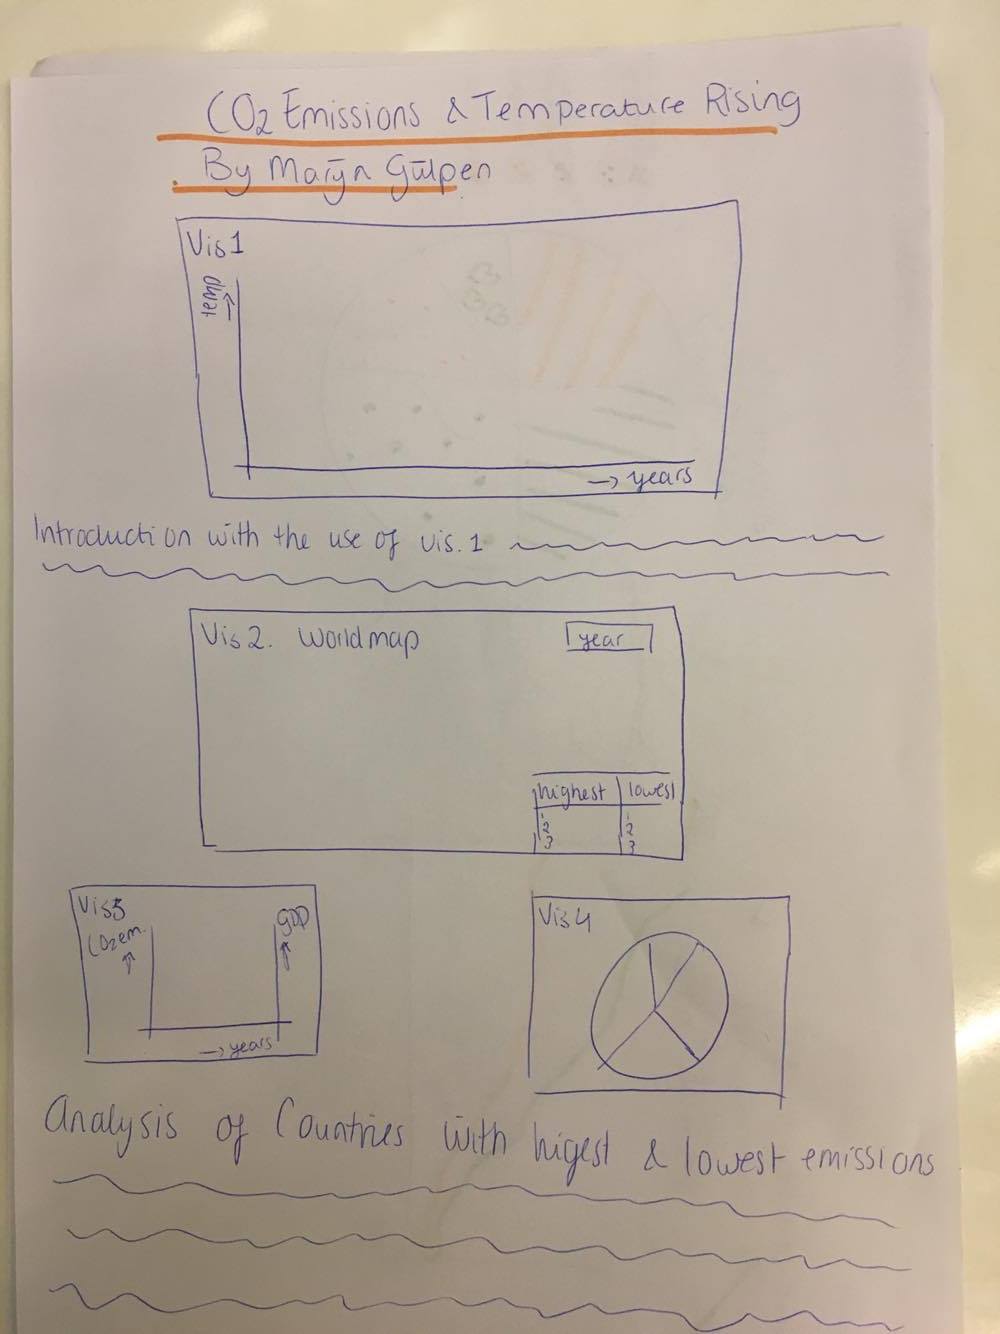 CO2 Emissions & Temperature Rising
By Marijn Gülpen
Vis 1
temp →
→ years
Introduction with the use of vis. 1
Vis 2. World map
year
highest lowest
1 1
2 2
3 3
Vis 3
CO2 em.
GDP
→ years
Vis 4
Analysis of Countries with higest & lowest emissions